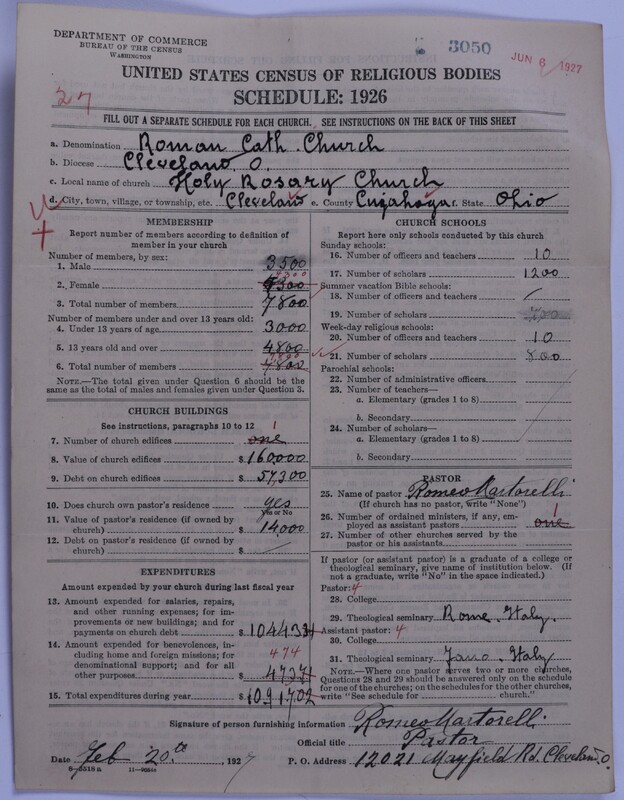 DEPARTMENT OF COMMERCE
BUREAU OF THE CENSUS
WASHINGTON
3050
JUN 6 1927
UNITED STATES CENSUS OF RELIGIOUS BODIES
SCHEDULE: 1926
27
FILL OUT A SEPARATE SCHEDULE FOR EACH CHURCH. SEE INSTRUCTIONS ON THE BACK OF THIS SHEET
a. Denomination Roman Cath. Church
b. Diocese Cleveland, O.
c. Local name of church Holy Rosary Church
d. City, town, village, or township, etc. Cleveland e. County Cuyahoga f. State Ohio
MEMBERSHIP
Report number of members according to definition of member in your church
Number of members, by sex:
1. Male 3500
4300
2. Female 4300
3. Total number of members 7800
Number of members under and over 13 years old:
4. Under 13 years of age 3000
5. 13 years old and over 4800
7800
6. Total number of members 7800
NOTE.—The total given under Question 6 should be the same as the total of males and females given under Question 3.
CHURCH BUILDINGS
See instructions, paragraphs 10 to 12
1
7. Number of church edifices one
8. Value of church edifices $ 160,000
9. Debt on church edifices $ 57,300
10. Does church own pastor's residence? yes
Yes or No
11. Value of pastor's residence (if owned by church) $ 14,000
12. Debt on pastor's residence (if owned by church) $
EXPENDITURES
Amount expended by your church during last fiscal year
13. Amount expended for salaries, repairs, and other running expenses; for improvements or new buildings; and for payments on church debt $
14. Amount expended for benevolences, including home and foreign missions; for denominational support; and for all other purposes $
474
15. Total expenditures during year $
CHURCH SCHOOLS
Report here only schools conducted by this church
Sunday schools:
16. Number of officers and teachers 10
17. Number of scholars 1200
Summer vacation Bible schools:
18. Number of officers and teachers
19. Number of scholars
Week-day religious schools:
20. Number of officers and teachers 10
21. Number of scholars 800
Parochial schools:
22. Number of administrative officers
23. Number of teachers—
a. Elementary (grades 1 to 8)
b. Secondary
24. Number of scholars—
a. Elementary (grades 1 to 8)
b. Secondary
PASTOR
25. Name of pastor Romeo Martorelli
(If church has no pastor, write "None")
1
26. Number of ordained ministers, if any, employed as assistant pastors one
27. Number of other churches served by the pastor or his assistants
If pastor (or assistant pastor) is a graduate of a college or theological seminary, give name of institution below. (If not a graduate, write "No" in the space indicated.)
Pastor: 4
28. College
29. Theological seminary Rome, Italy.
Assistant pastor: 4
30. College
31. Theological seminary Fano, Italy
NOTE.—Where one pastor serves two or more churches, Questions 28 and 29 should be answered only on the schedule for one of the churches; on the schedules for the other churches, write "See schedule for church."
Signature of person furnishing information Romeo Martorelli
Official title Pastor
Date Feb 20th, 1927 P. O. Address 12021 Mayfield Rd. Cleveland, O.